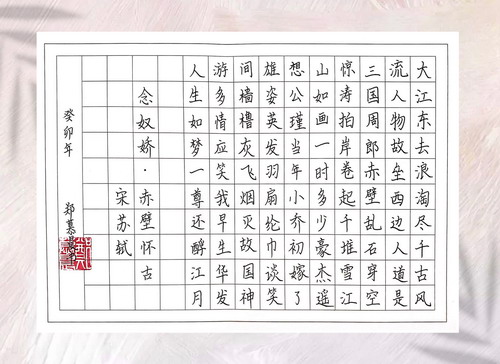 大江东去浪淘尽千古风
流人物故垒西边人道是
三国周郎赤壁乱石穿空
惊涛拍岸卷起千堆雪江
山如画一时多少豪杰遥
想公瑾当年小乔初嫁了
雄姿英发羽扇纶巾谈笑
间樯橹灰飞烟灭故国神
游多情应笑我早生华发
人生如梦一尊还酹江月
念奴娇·赤壁怀古
宋苏轼
癸卯年 郑慕